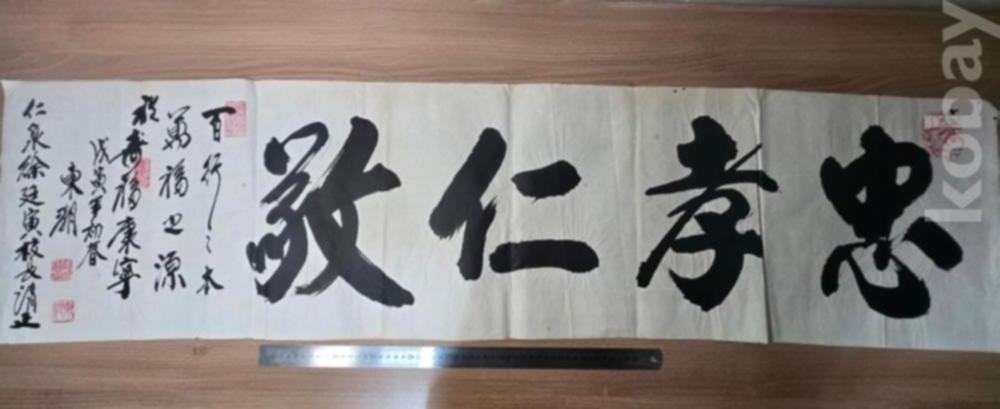 忠孝仁敬
百行之本
萬福之源
祝壽福康寧
戊寅年初春
東
仁泉徐廷寅校長清正
kobay